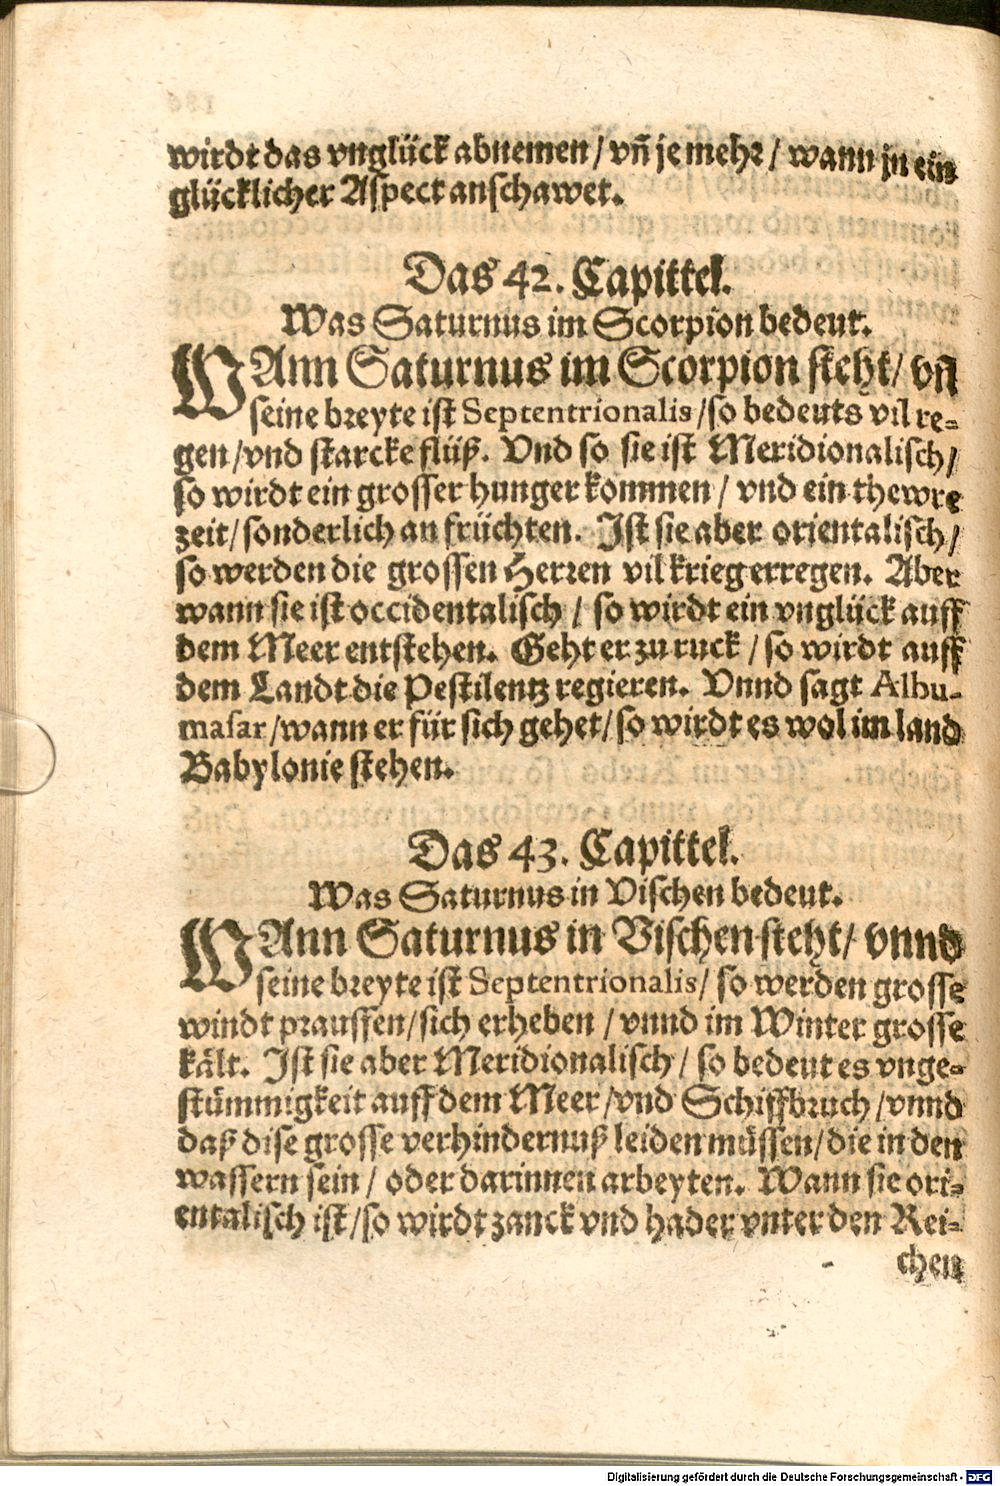 wirdt das vnglück abnemen / vñ je mehr / wann jn ein
glücklicher Aspect anschawet.
Das 42. Capittel.
Was Saturnus im Scorpion bedeut.
WAnn Saturnus im Scorpion steht / vñ
seine breyte ist Septentrionalis / so bedeuts vil re=
gen / vnd starcke flüß. Vnd so sie ist Meridionalisch /
so wirdt ein grosser hunger kommen / vnd ein thewre
zeit / sonderlich an früchten. Ist sie aber orientalisch /
so werden die grossen Herren vil krieg erregen. Aber
wann sie ist occidentalisch / so wirdt ein vnglück auff
dem Meer entstehen. Geht er zu ruck / so wirdt auff
dem Landt die Pestilentz regieren. Vnnd sagt Albu=
masar / wann er für sich gehet / so wirdt es wol im land
Babylonie stehen.
Das 43. Capittel.
Was Saturnus in Vischen bedeut.
WAnn Saturnus in Vischen steht / vnnd
seine breyte ist Septentrionalis / so werden grosse
windt praussen / sich erheben / vnnd im Winter grosse
kält. Ist sie aber Meridionalisch / so bedeut es vnge=
stümmigkeit auff dem Meer / vnd Schiffbruch / vnnd
daß dise grosse verhindernuß leiden müssen / die in den
wassern sein / oder darinnen arbeyten. Wann sie ori=
entalisch ist / so wirdt zanck vnd hader vnter den Rei=
chen
Digitalisierung gefördert durch die Deutsche Forschungsgemeinschaft - DFG